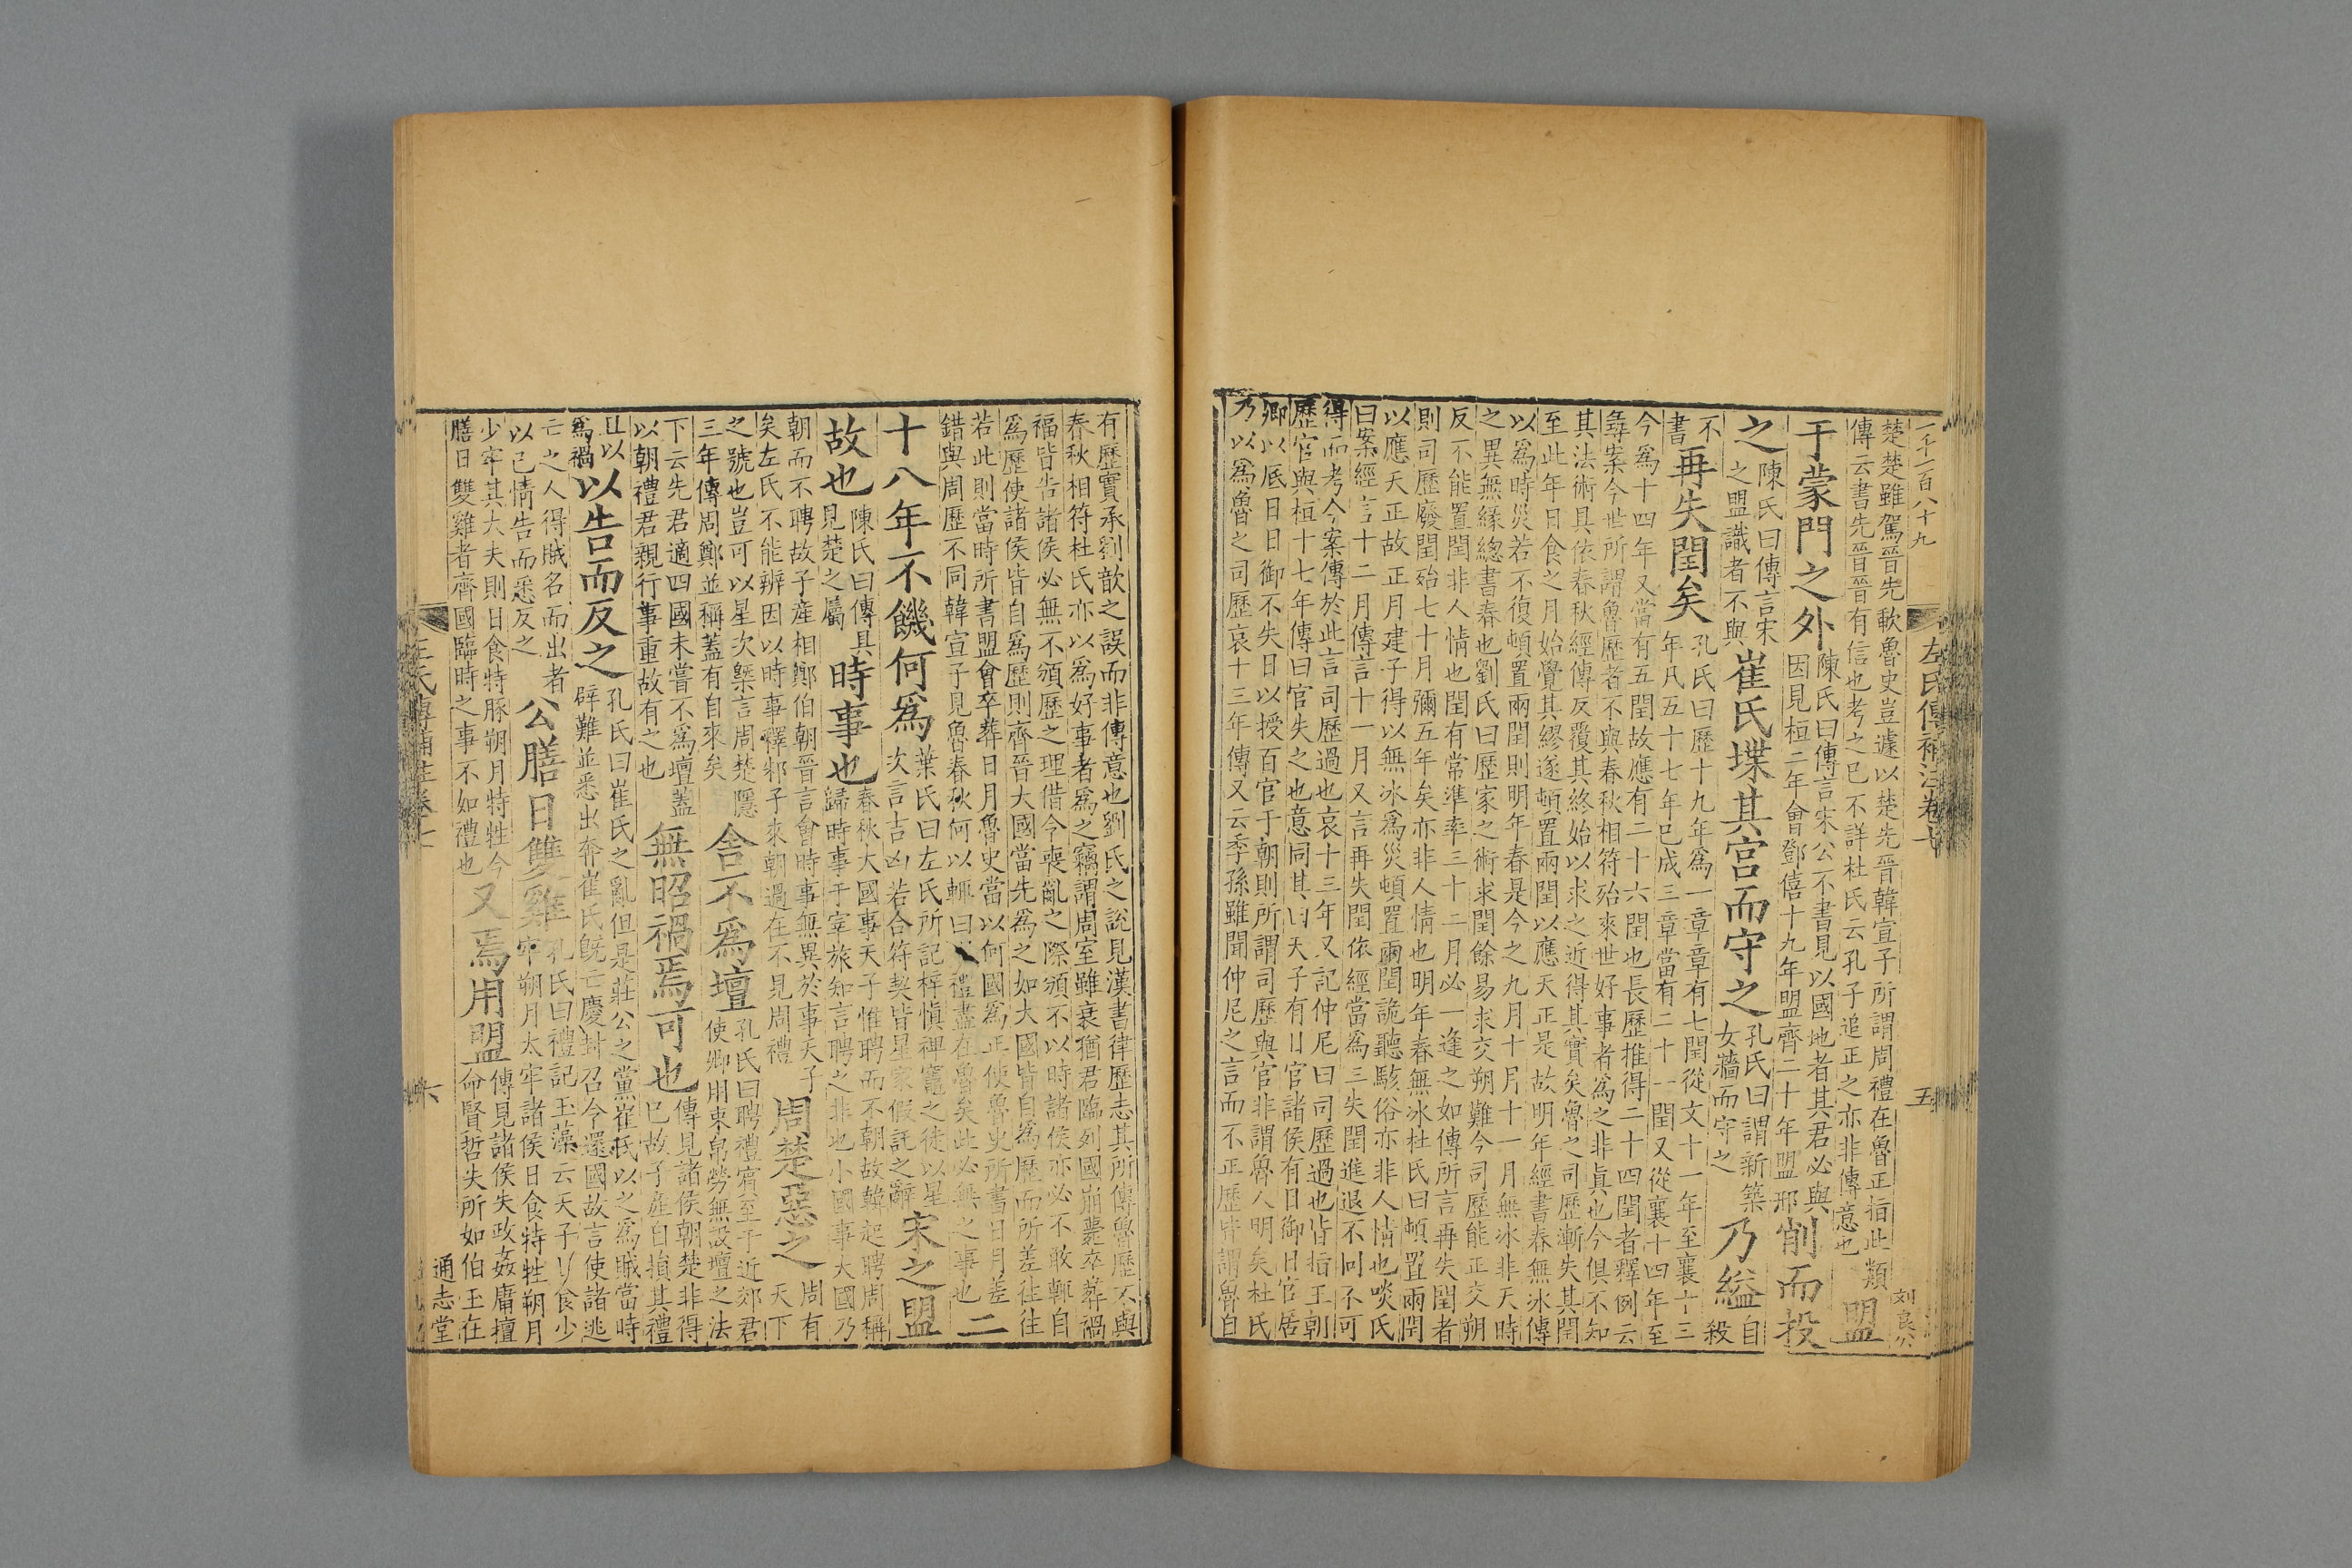 楚楚雖駕晉先歃魯史豈遽以楚先晉韓宣子所謂周禮在魯正指此類
傳云書先晉晉有信也考之已不詳杜氏云孔子追正之亦非傳意也
盟
于蒙門之外
陳氏曰傳言宋公不書見以國地者其君必與
因見桓二年會鄧僖十九年盟齊二十年盟邢
削而投
之
陳氏曰傳言宋
之盟識者不與
崔氏堞其宮而守之
孔氏曰謂新築
女牆而守之
乃縊
自殺
不
書
再失閏矣
孔氏曰歷十九年爲一章章有七閏從文十一年至襄十三
年凡五十七年已成三章當有二十一閏又從襄十四年至
今爲十四年又當有五閏故應有二十六閏也長歷推得二十四閏者釋例云
尋案今世所謂魯歷者不與春秋相符殆來世好事者爲之非真也今俱不知
其法術具依春秋經傳反覆其終始以求之近得其實矣魯之司歷漸失其閏
至此年日食之月始覺其繆遂頓置兩閏以應天正是故明年經書春無冰傳
以爲時災若不復頓置兩閏則明年春是今之九月十月十一月無冰非天時
之異無緣總書春也劉氏曰歷家之術求閏餘易求交朔難今司歷能正交朔
反不能置閏非人情也閏有常準率三十二月必一逢之如傳所言再失閏者
則司歷廢閏殆七十月彌五年矣亦非人情也明年春無冰杜氏曰頓置兩閏
以應天正故正月建子得以無冰爲災頓置兩閏詭聽駭俗亦非人情也啖氏
曰案經言十二月傳言十一月又言再失閏依經當爲三失閏進退不同不可
得而考今案傳於此言司歷過也哀十三年又記仲尼曰司歷過也皆指王朝
歷官與桓十七年傳曰官失之也意同其曰天子有日官諸侯有日御日官居
卿以厎日日御不失日以授百官于朝則所謂司歷與官非謂魯人明矣杜氏
乃以爲魯之司歷哀十三年傳又云季孫雖聞仲尼之言而不正歷皆謂魯自
有歷實承劉歆之誤而非傳意也劉氏之說見漢書律歷志其所傳魯歷不與
春秋相符杜氏亦以爲好事者爲之竊謂周室雖衰猶君臨列國崩薨卒葬禍
福皆告諸侯必無不頒歷之理借令喪亂之際頒不以時諸侯亦必不敢輒自
爲歷使諸侯皆自爲歷則齊晉大國當先爲之如大國皆自爲歷而所差往往
若此則當時所書盟會卒葬日月魯史當以何國爲正使魯史所書日月差
錯與周歷不同韓宣子見魯春秋何以輒曰周禮盡在魯矣此必無之事也
二
十八年不饑何爲
葉氏曰左氏所記梓慎裨竈之徒以星
次言吉凶若合符契皆星家假託之辭
宋之盟
故也
陳氏曰傳具
見楚之屬
時事也
春秋大國事天子惟聘而不朝故韓起聘周稱
歸時事于宰旅知言聘之非也小國事大國乃
朝而不聘故子產相鄭伯朝晉言會時事無異於事天子
矣左氏不能辨因以時事釋邾子來朝過在不見周禮
周楚惡之
周有
天下
之號也豈可以星次槩言周楚隱
三年傳周鄭並稱蓋有自來矣
舍不爲壇
孔氏曰聘禮賓至于近郊君
使卿用束帛勞無設壇之法
下云先君適四國未嘗不爲壇蓋
以朝禮君親行事重故有之也
無昭禍焉可也
傳見諸侯朝楚非得
已故子產自損其禮
且以
爲禍
以告而反之
孔氏曰崔氏之亂但是莊公之黨崔氏以之爲賊當時
辟難並悉出奔崔氏既亡慶封召令還國故言使諸逃
亡之人得賊名而出者
以已情告而悉反之
公膳日雙雞
孔氏曰禮記玉藻云天子日食少
牢朔月太牢諸侯日食特牲朔月
少牢其大夫則日食特豚朔月特牲今
膳日雙雞者齊國臨時之事不如禮也
又焉用盟
傳見諸侯失政姦庸擅
命賢哲失所如伯玉在
左氏傳補注卷七
五
左氏傳補注卷七
六
通志堂
一千一百八十九
刘良公